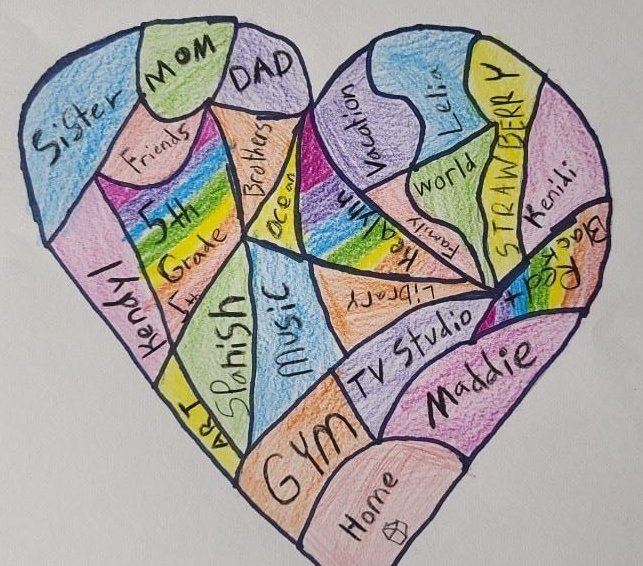 Sister
MOM
DAD
Friends
Brothers
Ocean
Vacation
Lelia
STRAWBERRY
World
Kenidi
Family
Kealynn
5th
Grade
Kendyl
Spanish
Music
Library
Back
TV Studio
Maddie
ART
GYM
Home